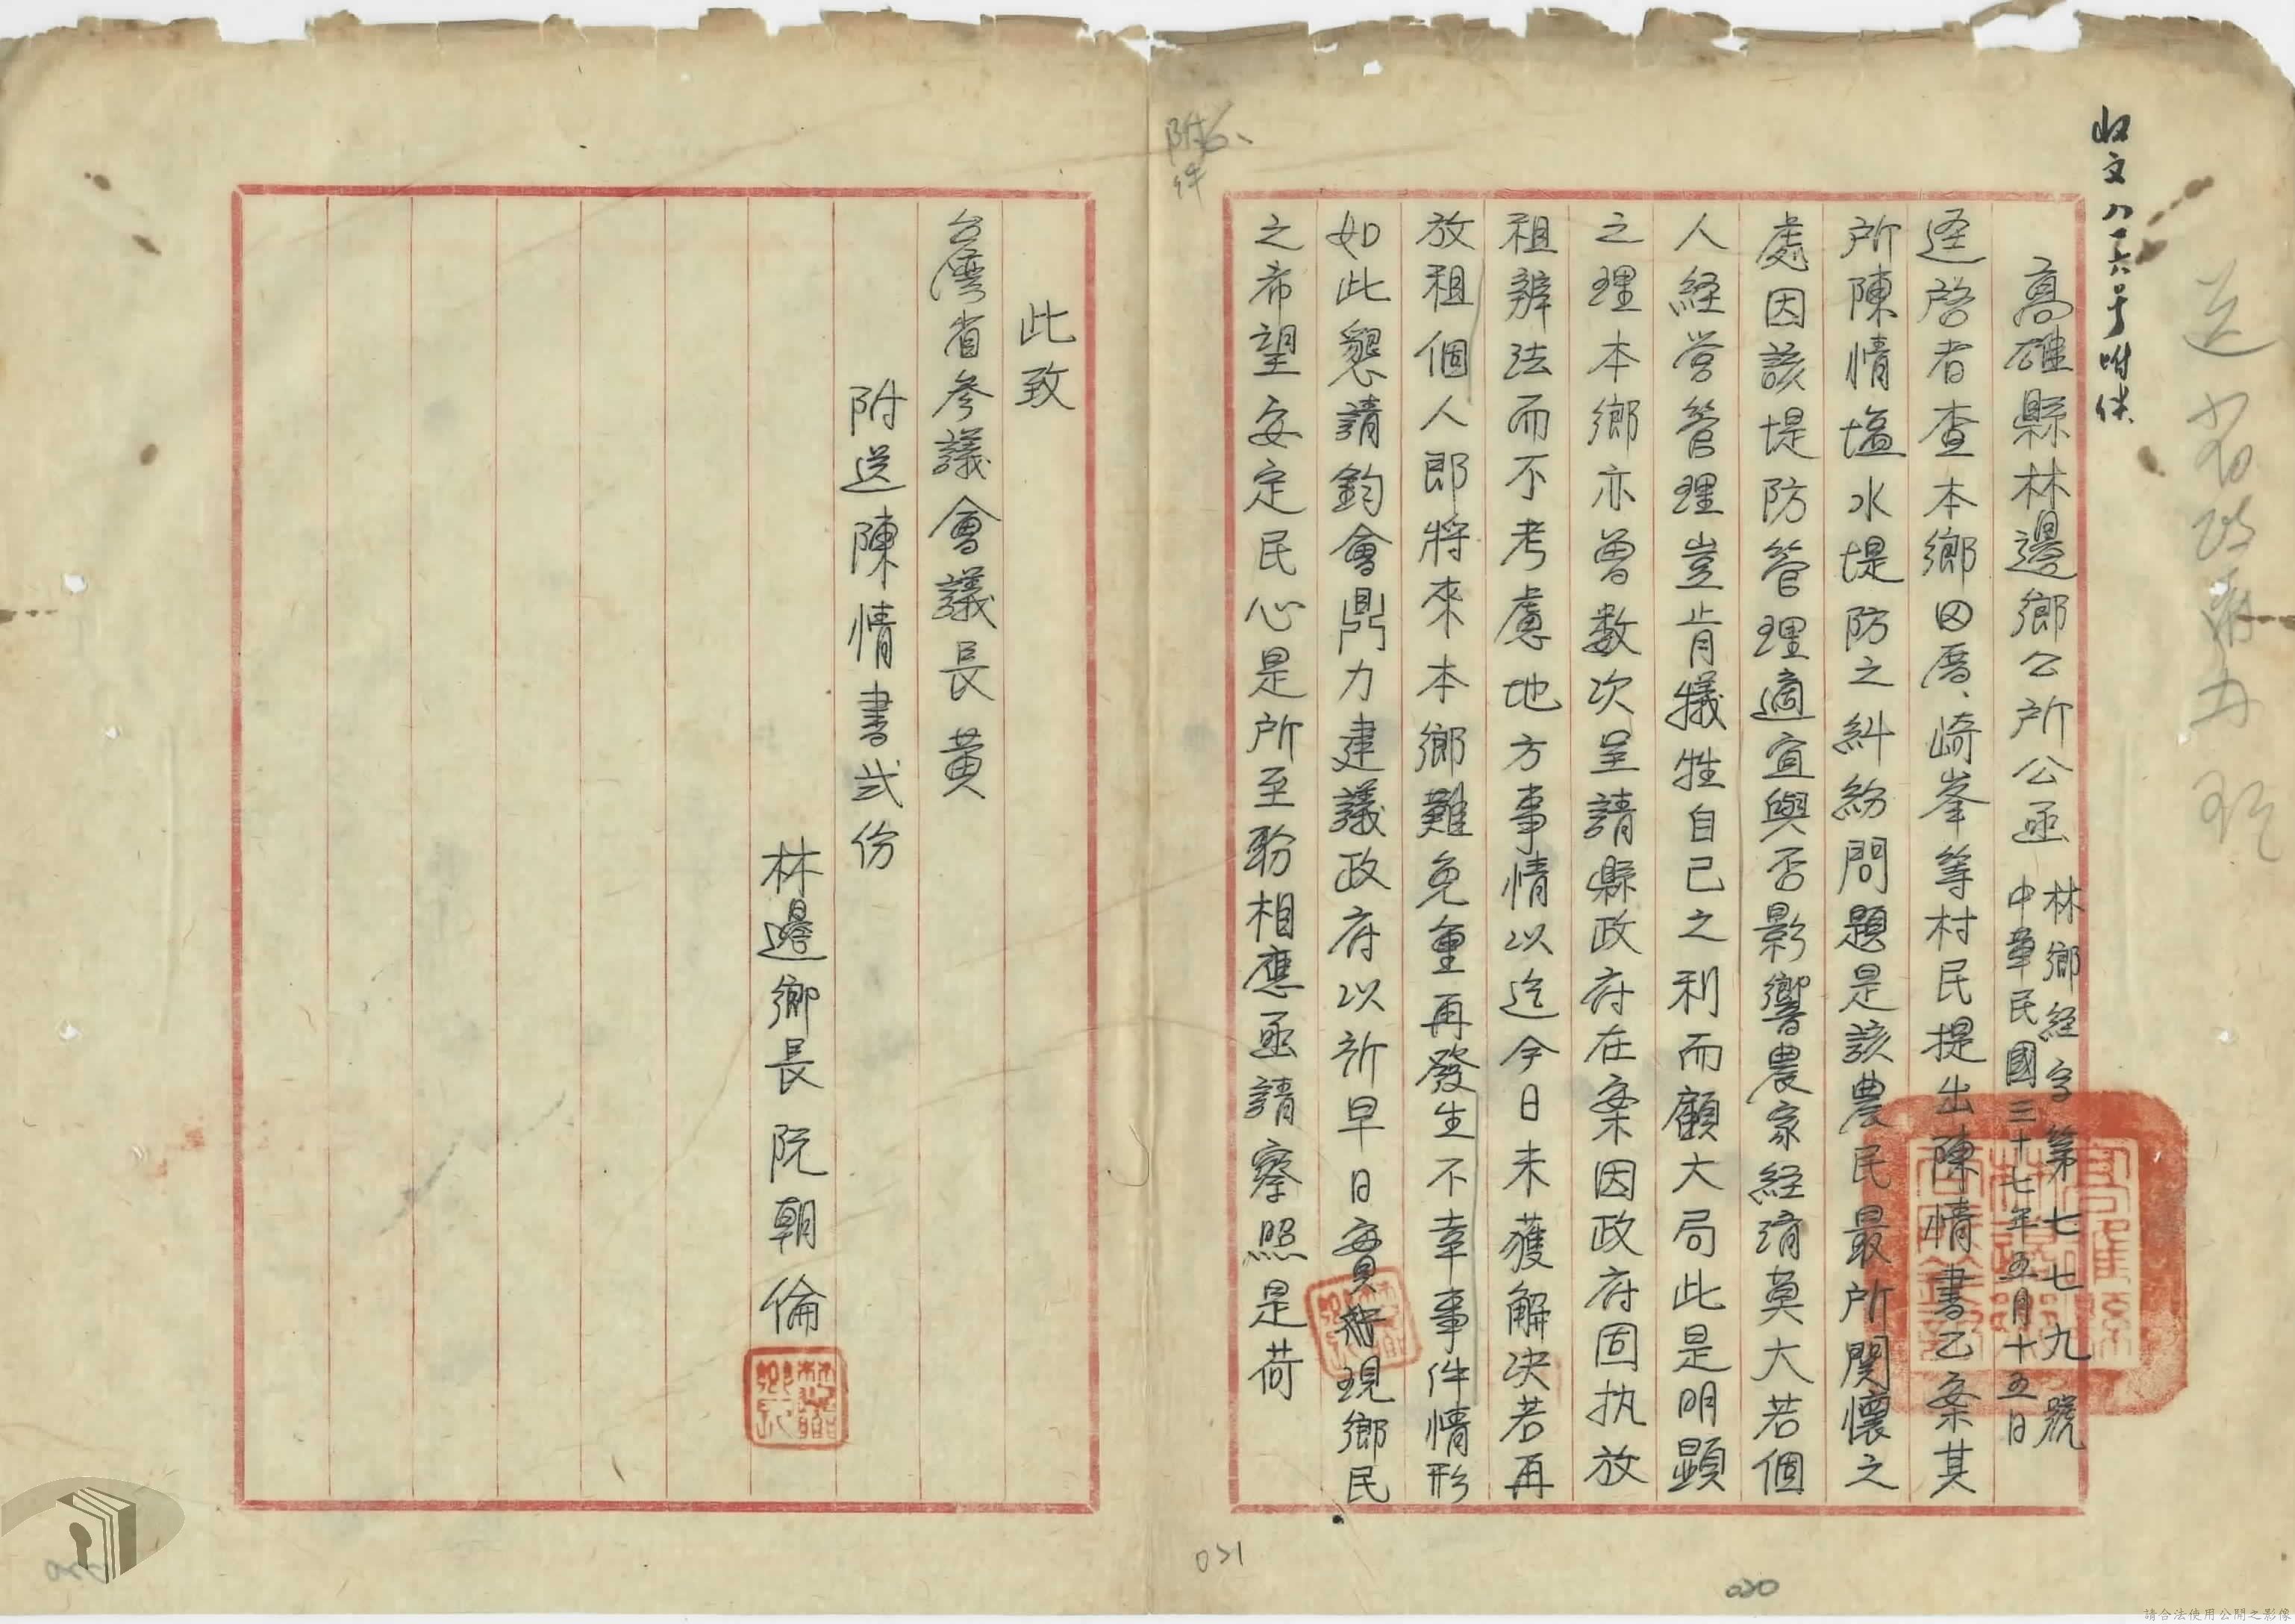 收文八一六号附件
高雄縣林邊鄉公所公函
林鄉經字第七七九號
中華民國三十七年五月十五日
逕啓者查本鄉田厝、崎峯等村民提出陳情書乙案其
所陳情塩水堤防之糾紛問題是該農民最所関懷之
處因該堤防管理適宜與否影響農家経濟莫大若個
人経営管理豈肯犧牲自己之利而顧大局此是明顕
之理本鄉亦曽数次呈請縣政府在案因政府固执放
租辦法而不考慮地方事情以迄今日未獲解決若再
放租個人即將來本鄉難免重再發生不幸事件情形
如此懇請鈞會鼎力建議政府以祈早日實現鄉民
之希望安定民心是所至盼相應函請察照是荷
此致
台灣省參議會議長黄
附送陳情書弍份
林邊鄉長阮朝倫
附件
031
020
請合法使用公開之影像